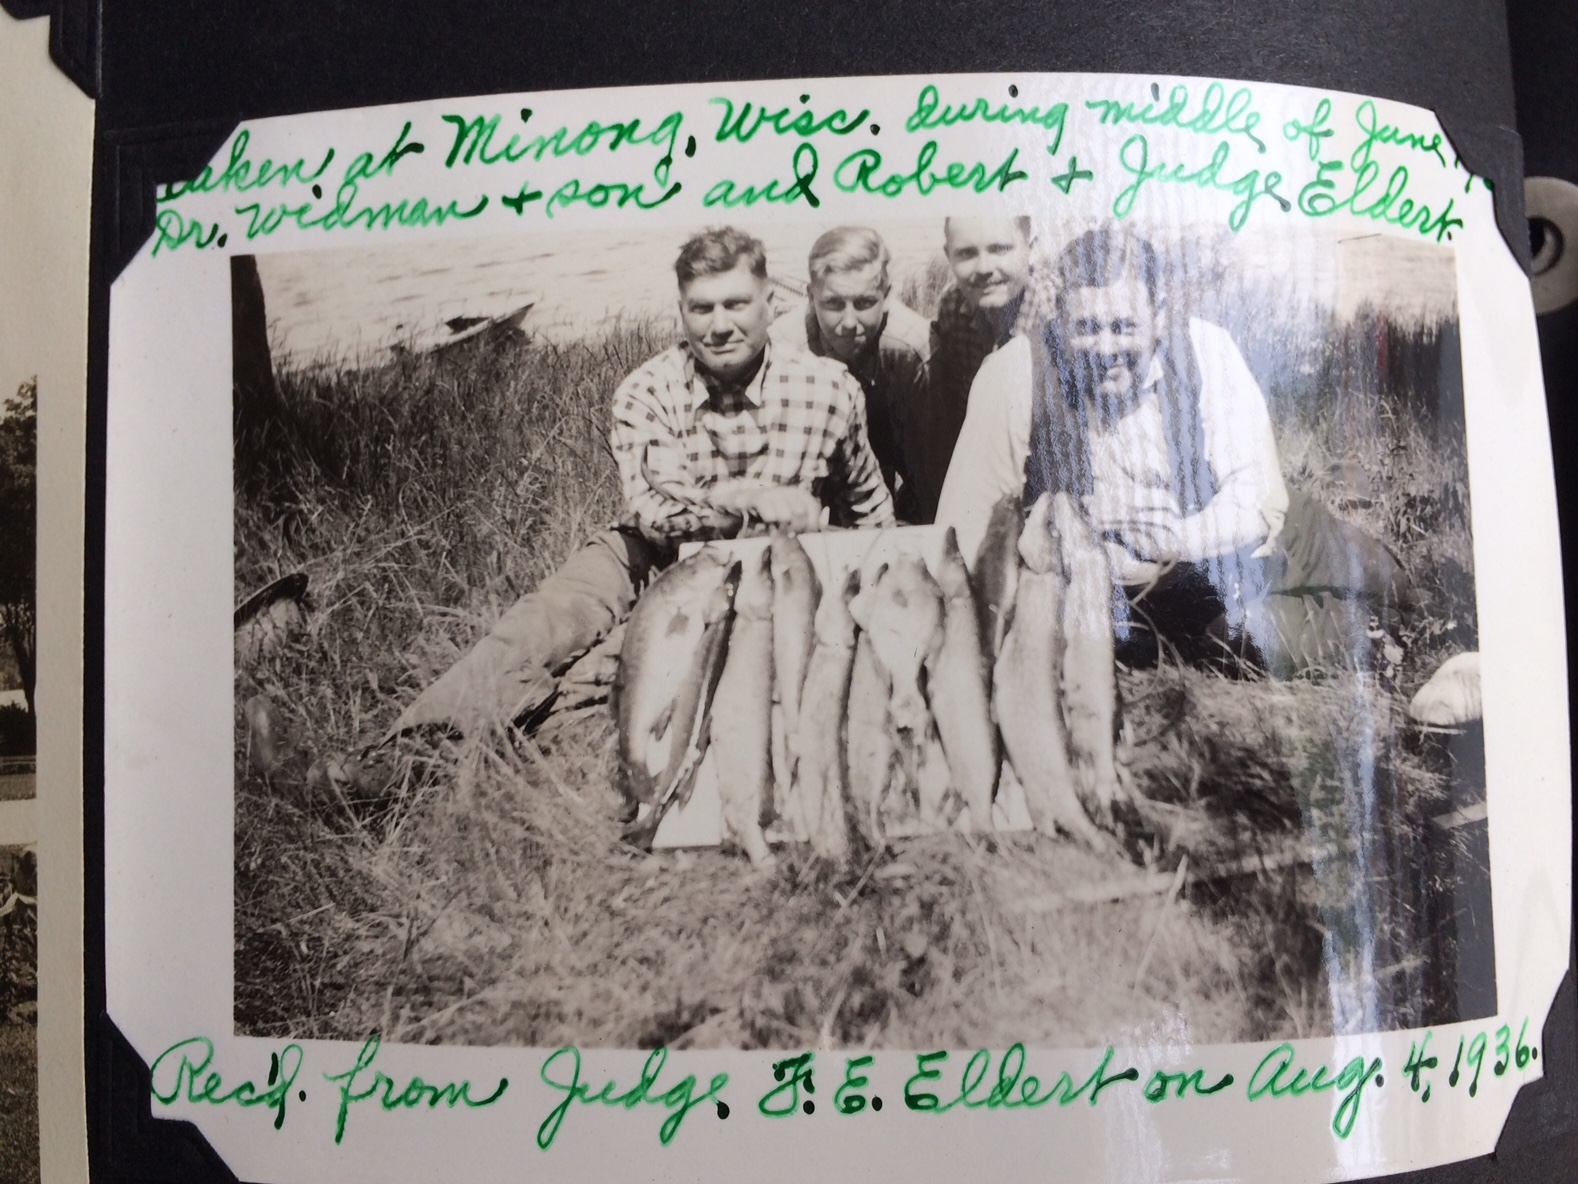 Taken at Minong, Wisc. during middle of June,
Dr. Widman + son and Robert + Judge Eldert.
Rec'd. from Judge F. E. Eldert on Aug. 4, 1936.